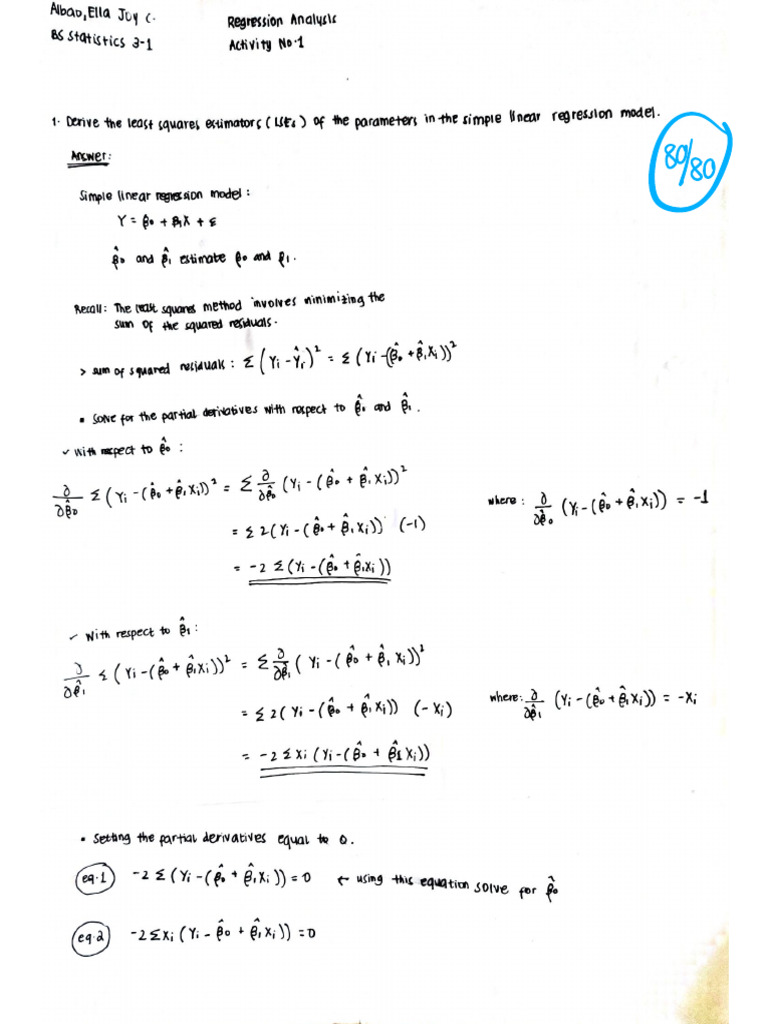 Albao, Ella Joy C.
Regression Analysis
BS Statistics 3-1
Activity No. 1
1. Derive the least squares estimators (LSEs) of the parameters in the simple linear regression model.
80/80
Answer:
Simple linear regression model:
Y = β₀ + β₁X + ε
β̂₀ and β̂₁ estimate β₀ and β₁.
Recall: The least squares method involves minimizing the
sum of the squared residuals.
> sum of squared residuals: Σ(Yi - Ŷi)² = Σ(Yi - (β̂₀ + β̂₁Xi))²
• Solve for the partial derivatives with respect to β̂₀ and β̂₁.
✓ With respect to β̂₀:
∂/∂β̂₀ Σ(Yi - (β̂₀ + β̂₁Xi))² = Σ ∂/∂β̂₀ (Yi - (β̂₀ + β̂₁Xi))²
where: ∂/∂β̂₀ (Yi - (β̂₀ + β̂₁Xi)) = -1
= Σ2(Yi - (β̂₀ + β̂₁Xi)) (-1)
= -2 Σ(Yi - (β̂₀ + β̂₁Xi))
✓ With respect to β̂₁:
∂/∂β̂₁ Σ(Yi - (β̂₀ + β̂₁Xi))² = Σ ∂/∂β̂₁ (Yi - (β̂₀ + β̂₁Xi))²
= Σ2(Yi - (β̂₀ + β̂₁Xi)) (-Xi)
where: ∂/∂β̂₁ (Yi - (β̂₀ + β̂₁Xi)) = -Xi
= -2 ΣXi (Yi - (β̂₀ + β̂1Xi))
• Setting the partial derivatives equal to 0.
eq.1 -2 Σ(Yi - (β̂₀ + β̂₁Xi)) = 0 ← using this equation solve for β̂₀
eq.2 -2ΣXi (Yi - β̂₀ + β̂₁Xi)) = 0